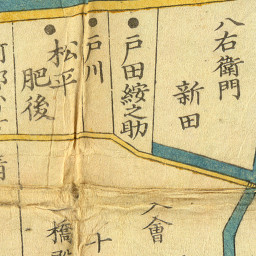 八右衛門
新田
戸田綏之助
戸川
松平
肥後
入會
十
橋